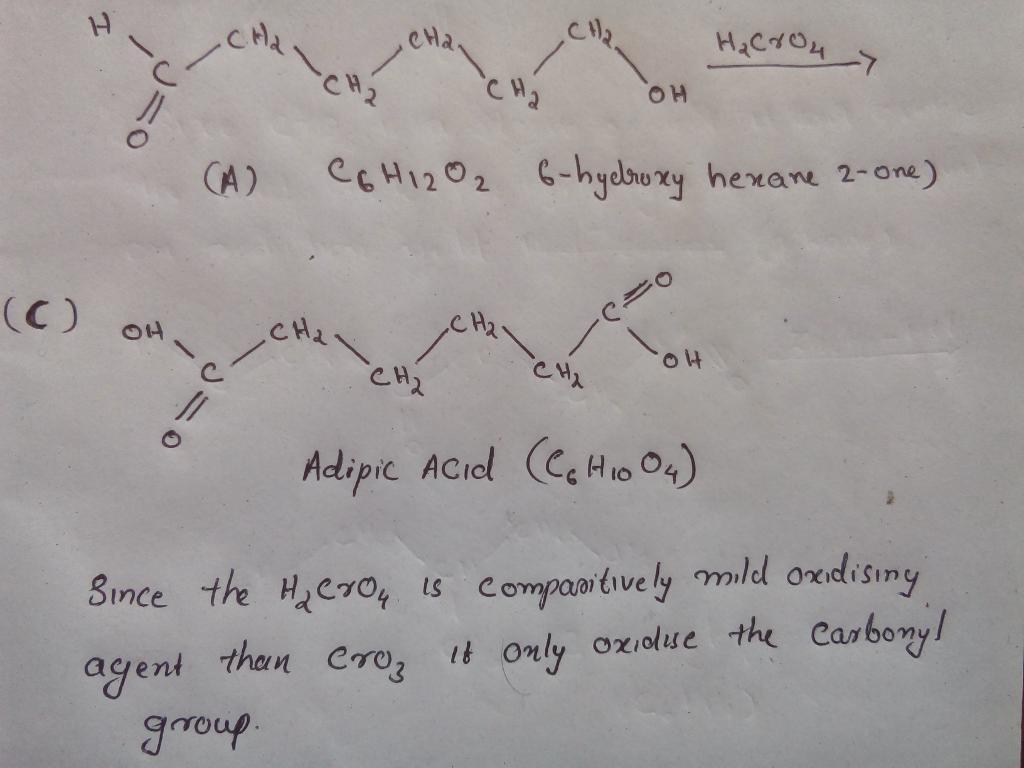 H CH2 CH2 CH2 H2CrO4
C CH2 CH2 OH
O
(A) C6H12O2 6-hydroxy hexane 2-one)
(C) OH CH2 CH2 C O
C CH2 CH2 OH
O
Adipic Acid (C6H10O4)
Since the H2CrO4 is comparitively mild oxidising
agent than CrO3 it only oxidise the carbonyl
group.